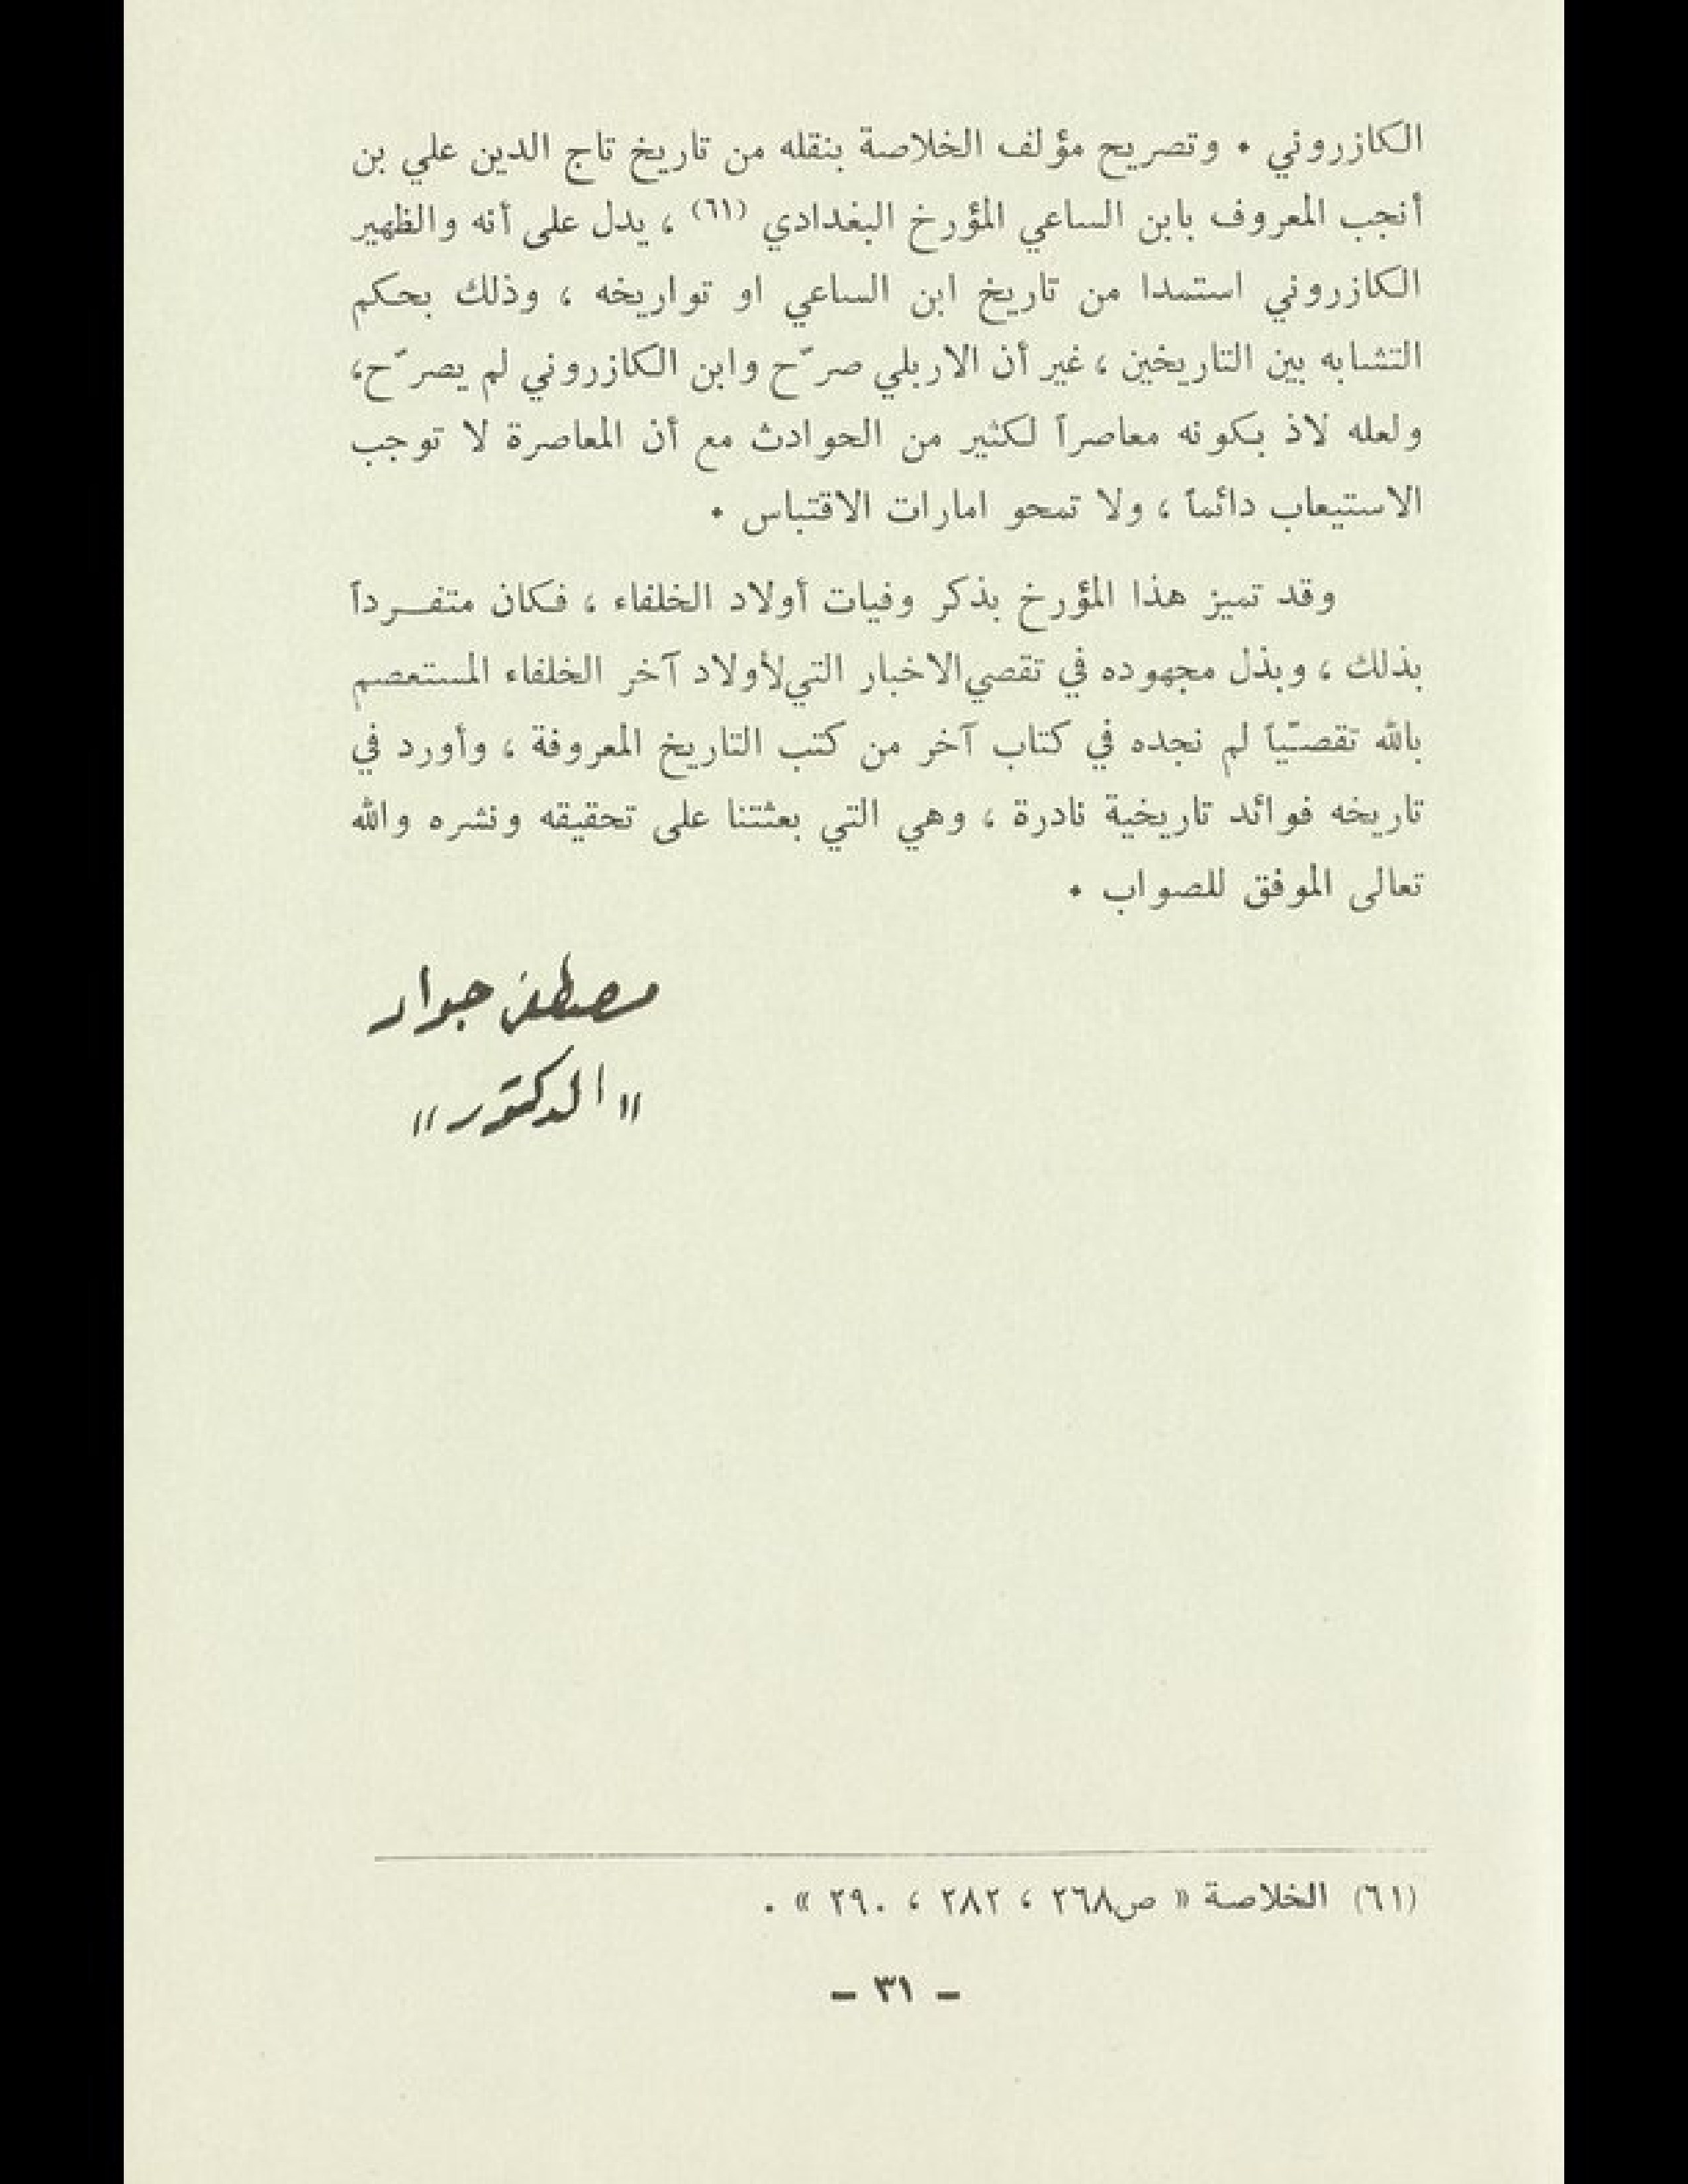 الكازروني . وتصريح مؤلف الخلاصة بنقله من تاريخ تاج الدين علي بن
أنجب المعروف بابن الساعي المؤرخ البغدادي (٦١) ، يدل على أنه والظهير
الكازروني استمدا من تاريخ ابن الساعي او تواريخه ، وذلك بحكم
التشابه بين التاريخين ، غير أن الاربلي صرّح وابن الكازروني لم يصرّح،
ولعله لاذ بكونه معاصراً لكثير من الحوادث مع أن المعاصرة لا توجب
الاستيعاب دائماً ، ولا تمحو امارات الاقتباس .
وقد تميز هذا المؤرخ بذكر وفيات أولاد الخلفاء ، فكان متفـــرداً
بذلك ، وبذل مجهوده في تقصي الاخبار التي لأولاد آخر الخلفاء المستعصم
بالله تقصّياً لم نجده في كتاب آخر من كتب التاريخ المعروفة ، وأورد في
تاريخه فوائد تاريخية نادرة ، وهي التي بعثتنا على تحقيقه ونشره والله
تعالى الموفق للصواب .
مصطفى جواد
"الدكتور"
(٦١) الخلاصة « ص٢٦٨ ، ٢٨٢ ، ٢٩٠ » .
– ٣١ –